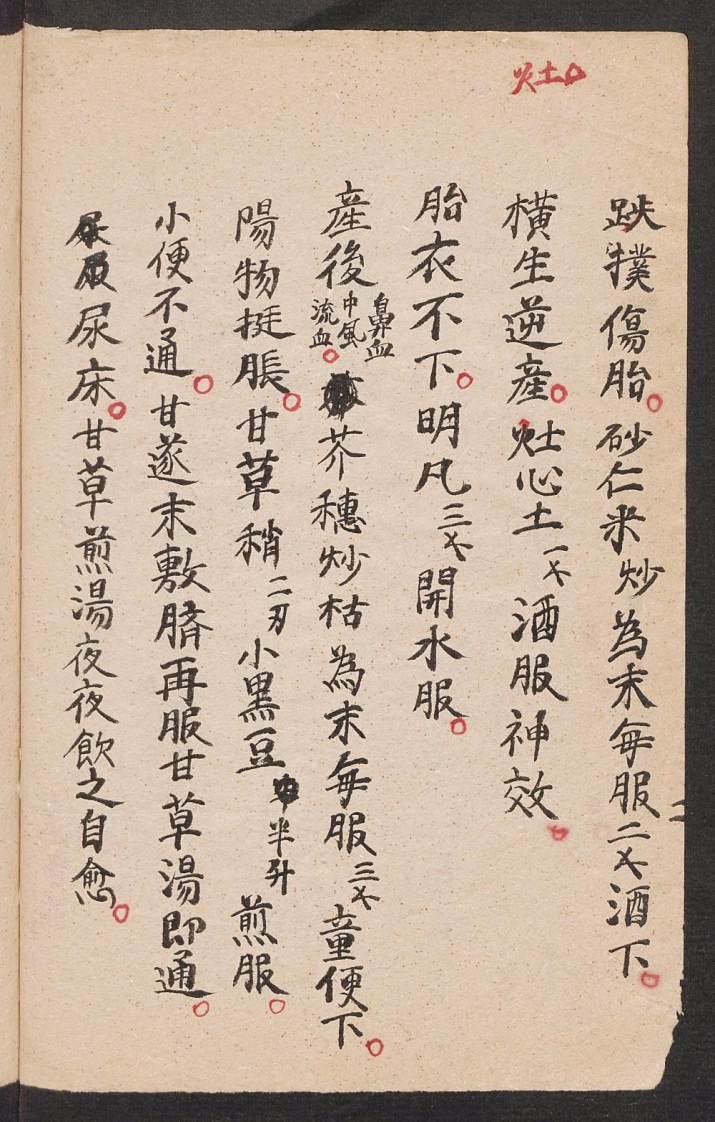 灶土
跌撲傷胎。砂仁米炒為末每服二㐅酒下。
橫生逆產。灶心土一㐅酒服神效。
胎衣不下。明凡三㐅開水服。
產後鼻血中風流血。芥穗炒枯為末每服三㐅童便下。
陽物挺脹。甘草稍二刃小黑豆半升煎服。
小便不通。甘遂末敷臍再服甘草湯即通。
尿床。甘草煎湯夜夜飲之自愈。